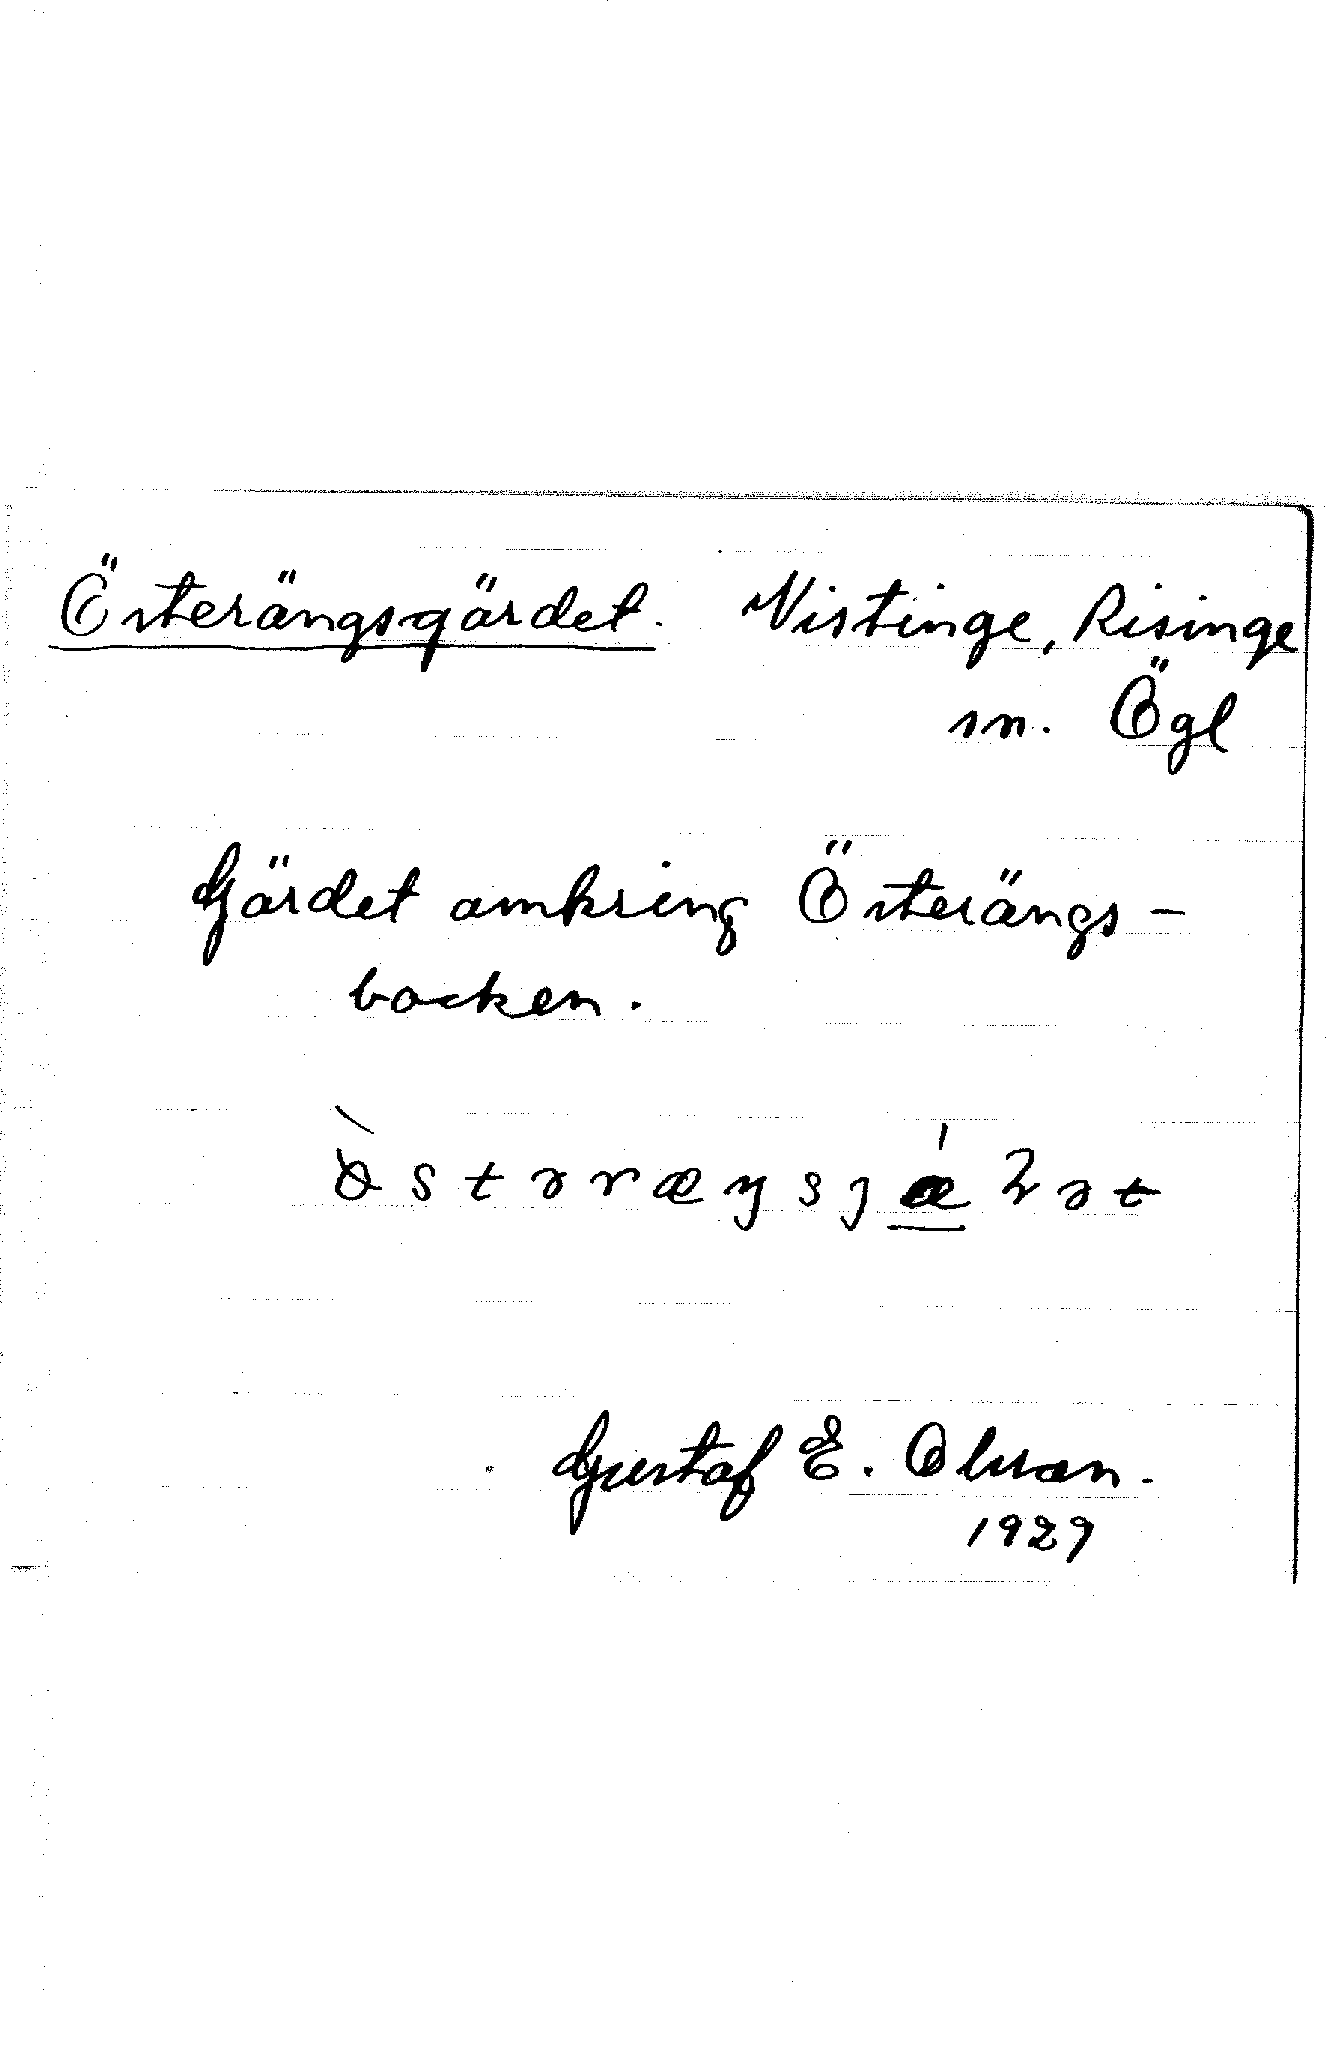 Österängsgärdet. Vistinge, Risinge
sn. Ögl
Gärdet omkring Österängs-
backen.
Gustaf E. Olsson.
1929